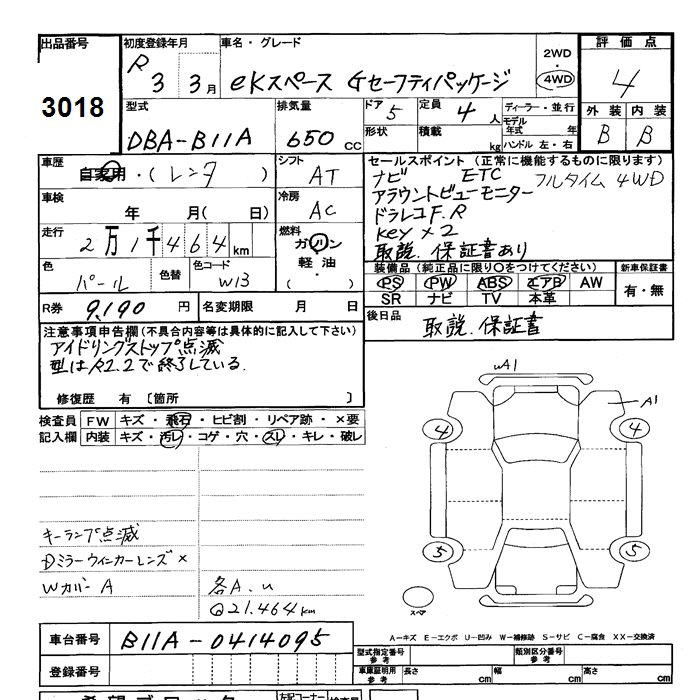 出品番号
3018
初度登録年月
R3 3月
車名・グレード
eKスペース Gセーフティパッケージ
2WD
・
4WD
評価点
4
外装 内装
B B
型式
DBA-B11A
排気量
650 CC
ドア 5
定員 4 人
形状
積載 kg
ディーラー・並行
モデル年式 年
ハンドル 左・右
車歴
自家用・(レンタ)
シフト
AT
車検
年 月( 日)
冷房
AC
走行
2万1千464km
燃料
ガソリン
軽・油
・( )
色
パール
色替
色コード
W13
R券 9,190 円
名変期限 月 日
セールスポイント(正常に機能するものに限ります)
ナビ ETC フルタイム4WD
アラウンドビューモニター
ドラレコF.R
Key×2
取説.保証書あり
装備品(純正品に限り○をつけてください)
PS PW ABS エアB AW
SR ナビ TV 本革
新車保証書
有・無
後日品
取説.保証書
注意事項申告欄(不具合内容等は具体的に記入して下さい)
アイドリングストップ点滅
型はR2.2で終了している.
修復歴 有〔箇所 〕
検査員記入欄
FW キズ・飛石・ヒビ割・リペア跡・×要
内装 キズ・汚レ・コゲ・穴・スレ・キレ・破レ
キーランプ点滅
Dミラーウィンカーレンズ×
Wカバー A
各A.u
Q21.464km
uA1
A1
4 4
5 5
スペア
A-キズ E-エクボ U-凹み W-補修跡 S-サビ C-腐食 XX-交換済
車台番号
B11A-0414095
登録番号
型式指定番号
参考
類別区分番号
参考
車庫証明用
参考
長さ cm
幅 cm
高さ cm